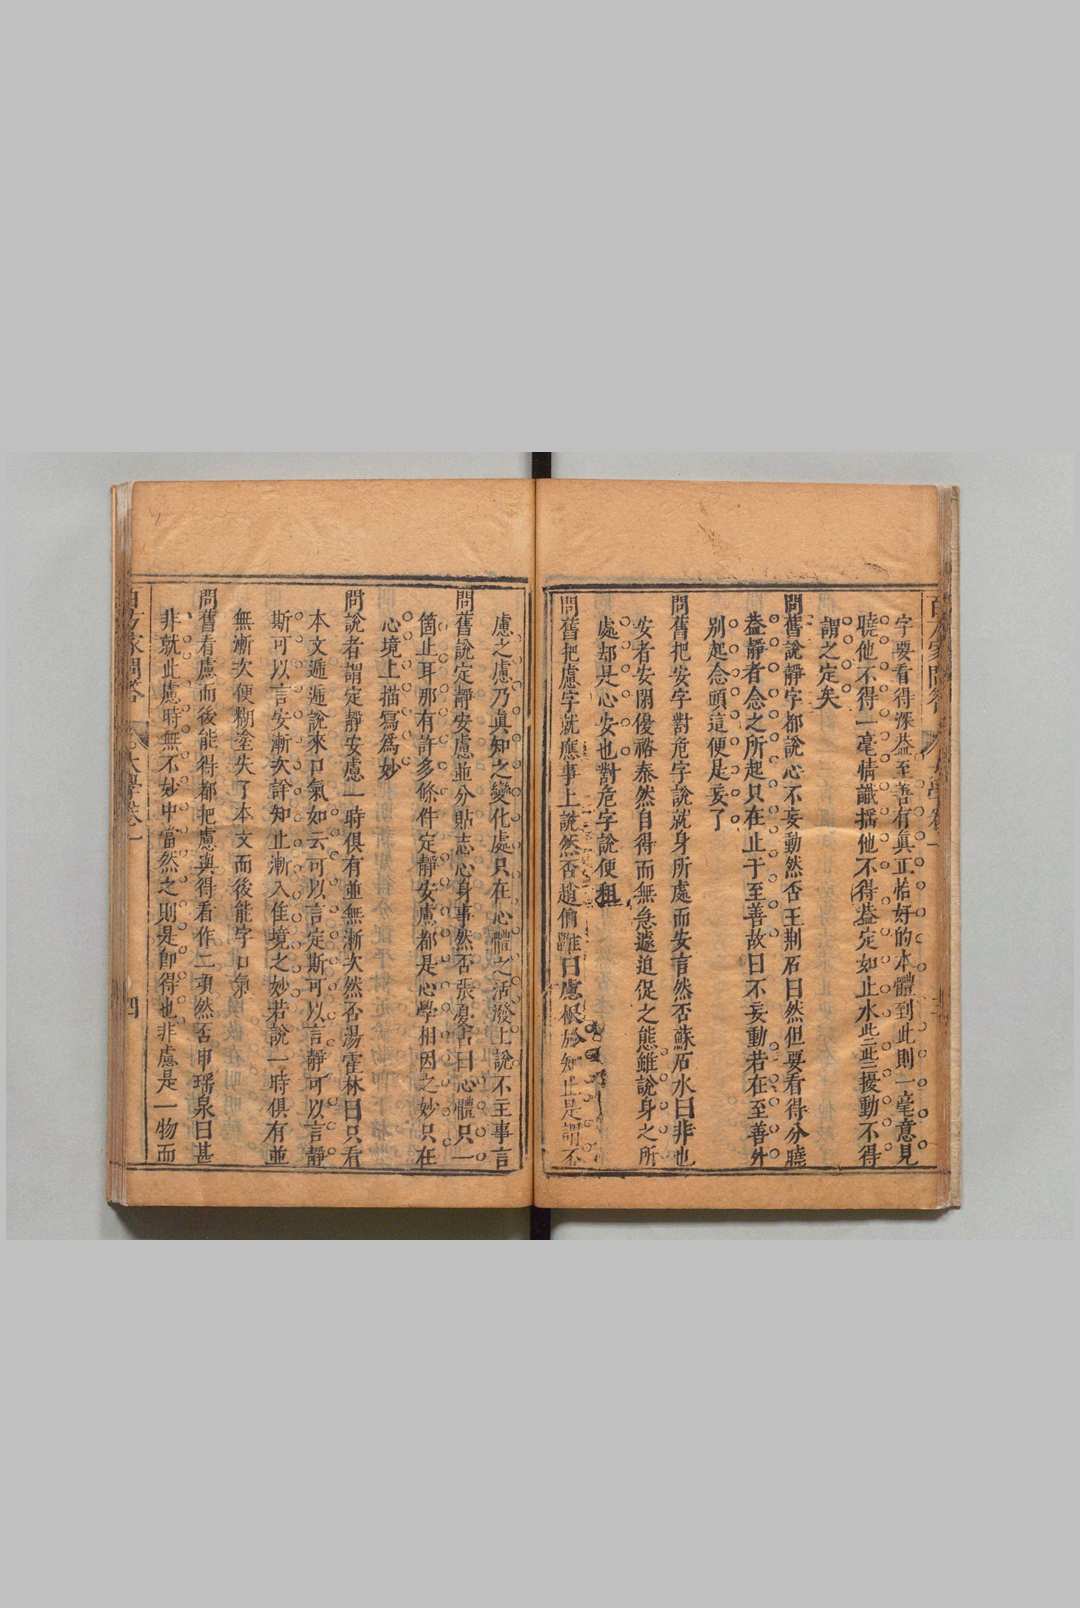 字要看得深葢至善有眞正恰好的本體到此則一毫意見
曉他不得一毫情識搖他不得葢定如止水些些擾動不得
謂之定矣
問舊說靜字都說心不妄動然否王荆石曰然但要看得分曉
葢靜者念之所起只在止于至善故曰不妄動若在至善外
別起念頭這便是妄了
問舊把安字對危字說就身所處而安言然否蘇石水曰非也
安者安閒優裕泰然自得而無急遽迫促之態雖說身之所
處却是心安也對危字說便粗
問舊把慮字就應事上說然否趙儕鶴曰慮根於知止是謂不
慮之慮乃眞知之變化處只在心體之活潑上說不主事言
問舊說定靜安慮並分貼志心身事然否張夏占曰心體只一
箇止耳那有許多條件定靜安慮都是心學相因之妙只在
心境上描寫爲妙
問說者謂定靜安慮一時俱有並無漸次然否湯霍林曰只看
本文遞遞說來口氣如云可以言定斯可以言靜可以言靜
斯可以言安漸次詳知止漸入佳境之妙若說一時俱有並
無漸次便糊塗失了本文而後能字口氣
問舊看慮而後能得都把慮與得看作二項然否申瑤泉曰甚
非就此慮時無不妙中當然之則是卽得也非慮是一物而
四